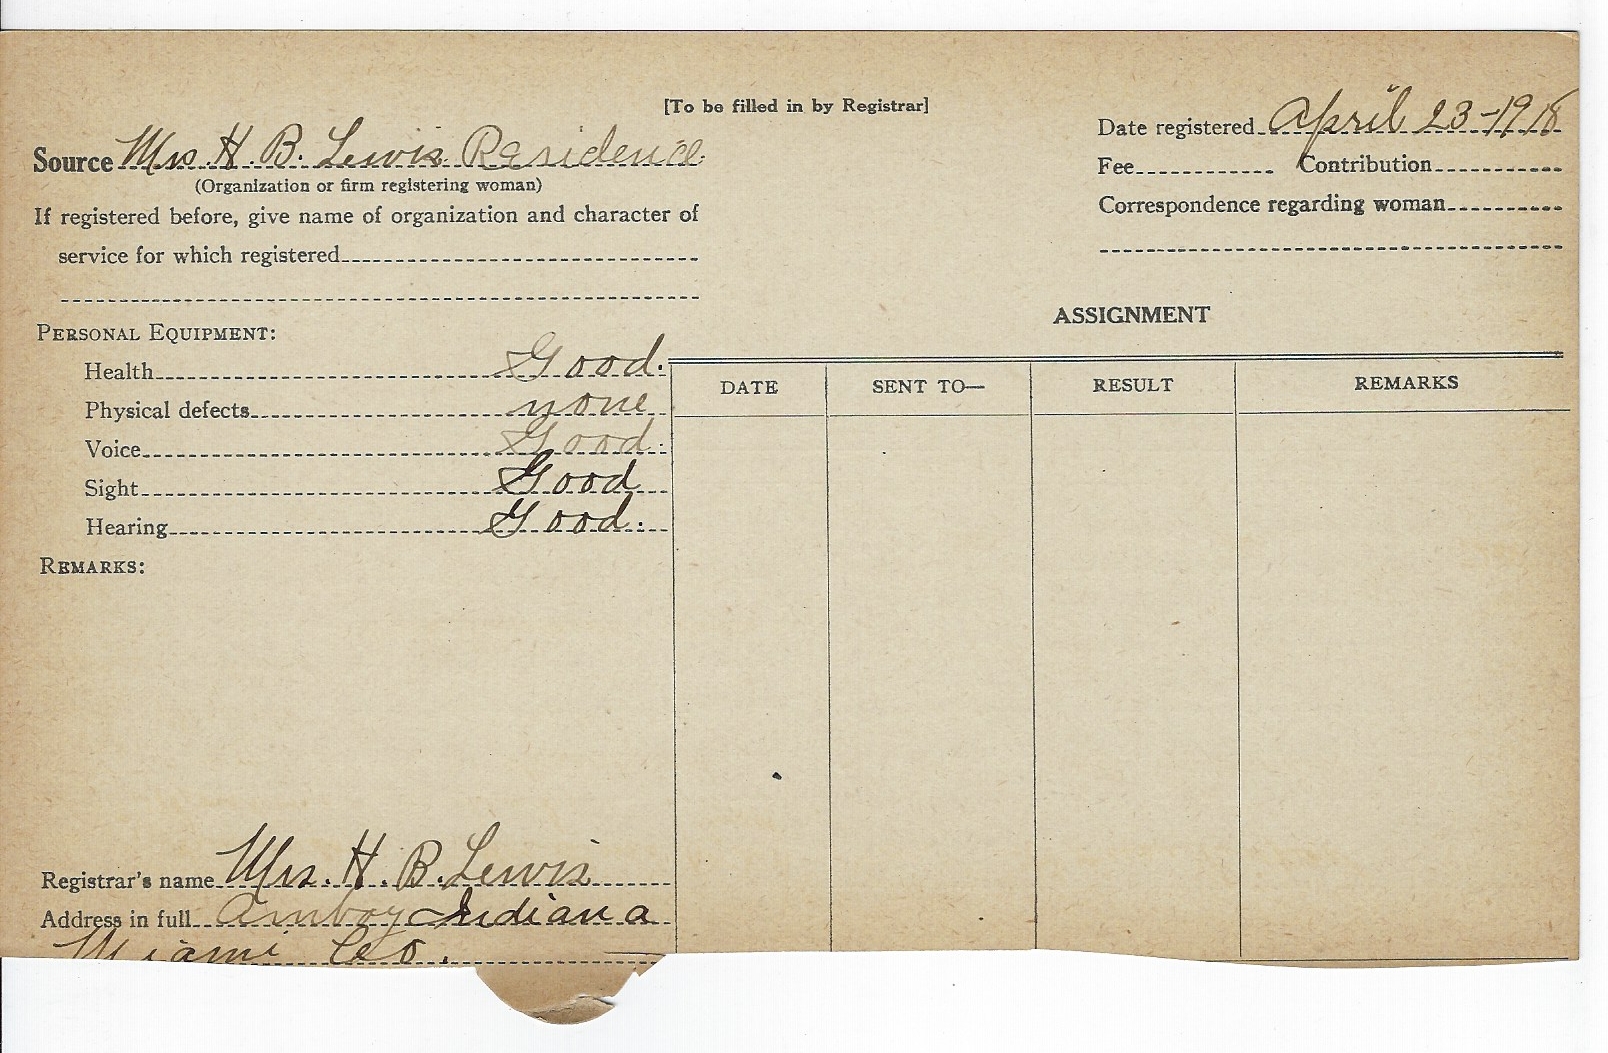 [To be filled in by Registrar]
Date registered April 23-1918
Source Mrs. H. B. Lewis Residence
(Organization or firm registering woman)
Fee Contribution
If registered before, give name of organization and character of
service for which registered
Correspondence regarding woman
ASSIGNMENT
PERSONAL EQUIPMENT:
Health Good.
Physical defects none
Voice Good.
Sight Good
Hearing Good.
REMARKS:
DATE SENT TO— RESULT REMARKS
Registrar's name Mrs. H. B. Lewis
Address in full Amboy Indiana
Miami Co.